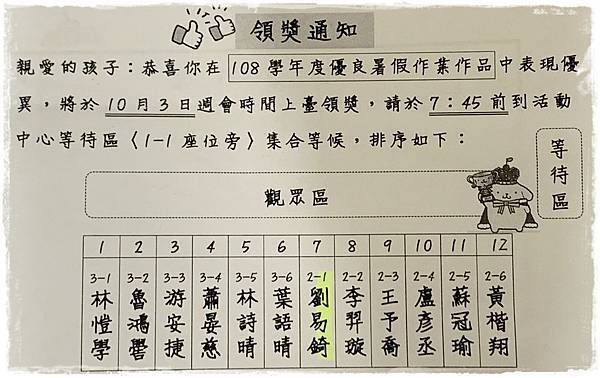 領獎通知
親愛的孩子：恭喜你在108學年度優良暑假作業作品中表現優
異，將於10月3日週會時間上臺領獎，請於7：45前到活動
中心等待區〈1-1座位旁〉集合等候，排序如下：
等待區
觀眾區
1 2 3 4 5 6 7 8 9 10 11 12
3-1 3-2 3-3 3-4 3-5 3-6 2-1 2-2 2-3 2-4 2-5 2-6
林愷學
魯鴻礐
游安捷
蕭晏慈
林詩晴
葉語晴
劉易錡
李羿璇
王予喬
盧彥丞
蘇冠瑜
黃楷翔